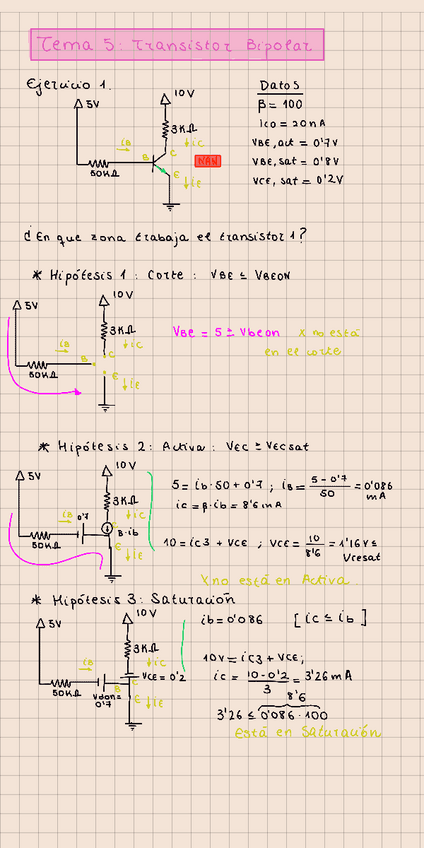 Tema 5: Transistor Bipolar
Ejercicio 1.
5V
10V
3KΩ
50KΩ
iB
B
C
E
iC
iE
NPN
Datos
β = 100
Ico = 20nA
VBE,act = 0'7V
VBE,sat = 0'8V
VCE,sat = 0'2V
¿En que zona trabaja el transistor 1?
* Hipótesis 1: Corte: VBE ≤ VBEON
5V
10V
3KΩ
50KΩ
iB
B
C
E
iC
iE
VBE = 5 ≥ VBeon X no está
en el corte
* Hipótesis 2: Activa: VEC ≥ VECsat
5V
10V
3KΩ
50KΩ
0'7
iB
iC
B·ib
E
iE
5 = ib·50 + 0'7 ; iB = 5-0'7/50 = 0'086 mA
ic = β·ib = 8'6 mA
10 = ic3 + VCE ; VCE = 10/8'6 = 1'16V ≤
Vcesat
X no está en Activa
* Hipótesis 3: Saturación
5V
10V
3KΩ
50KΩ
iB
iC
VCE = 0'2
Vdon=
0'7
B
C
E
iE
ib = 0'086 [ic ≤ ib]
10V = ic3 + VCE;
ic = 10-0'2/3 = 3'26 mA
8'6
3'26 ≤ 0'086·100
Está en Saturación